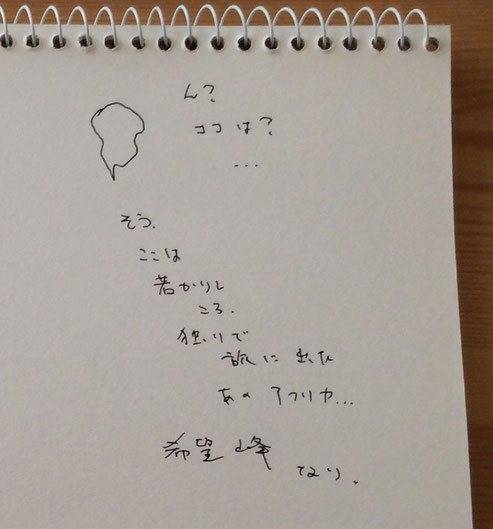 ん?
ココは?
...
そう.
ここは
若かりし
ころ.
独りで
旅に出た
あの アフリカ...
希望峰
なり.